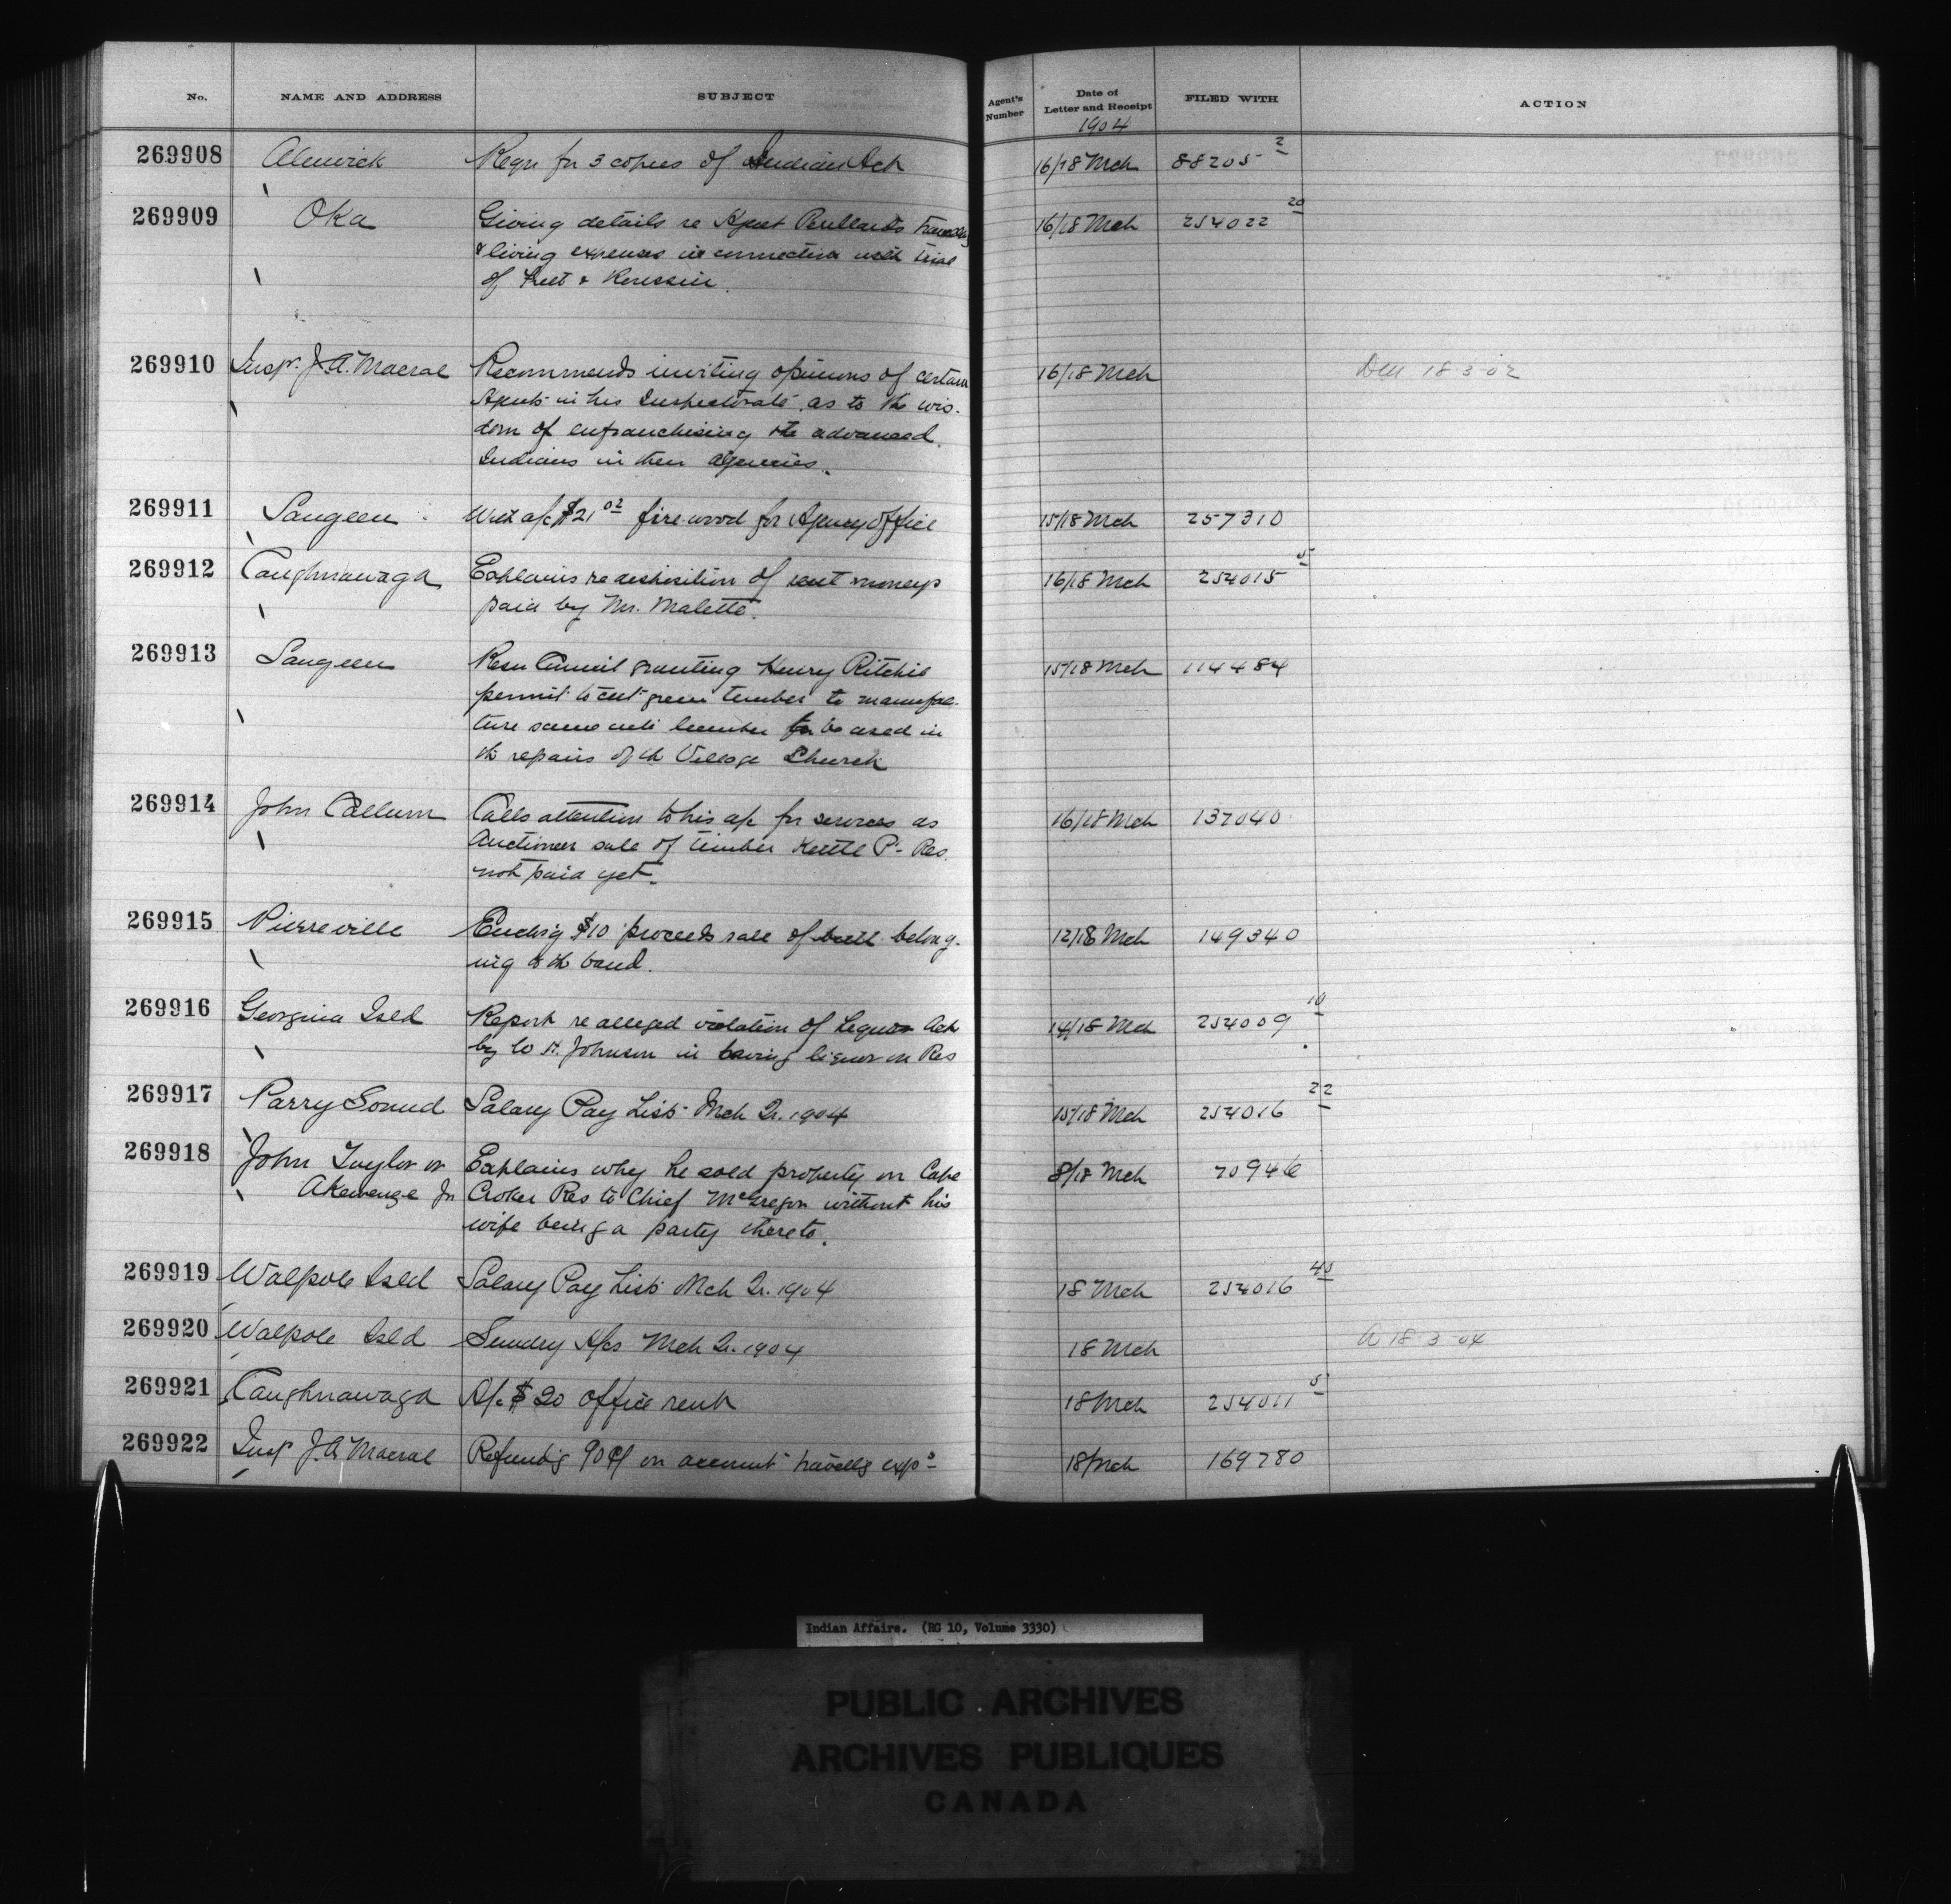 No. NAME AND ADDRESS SUBJECT Agent's Number Date of Letter and Receipt FILED WITH ACTION
1904
269908 Alnwick Reqn for 3 copies of Indian Act 16/18 Mch 88205 2
269909 Oka Giving details re Agent Perillard's
& living expenses in connection with trial
of & 16/18 Mch 254022 20
269910 Insp. J.A. Macrae Recommends inviting opinions of certain 16/18 Mch 18-3-02
Agents in his Inspectorate as to the wis-
dom of enfranchising the advanced
Indians in their agencies.
269911 Saugeen a/c $21 02 fire wood for Agency Office 15/18 Mch 257310
269912 Caughnawaga Explains re disposition of rent moneys 16/18 Mch 254015 5
paid by Mr. Malette.
269913 Saugeen Resn Council granting Henry Ritchie 15/18 Mch 114484
permit to cut green timber to manufac-
ture same into lumber to be used in
the repairs of th Village Church
269914 John Callum Calls attention to his a/c for services as 16/18 Mch 137040
Auctioneer sale of timber Kettle Pt Res.
not paid yet.
269915 Pierreville Enclosg $10 proceeds sale of bull belong- 12/18 Mch 149340
ing to th band.
269916 Georgina Isld Report re alleged violation of Liquor Act 14/18 Mch 254009 10
by W H. Johnson in having liquor on Res
269917 Parry Sound Salary Pay List Mch Qr. 1904 15/18 Mch 254016 22
269918 John Taylor or Explains why he sold property on Cape 8/18 Mch 70946
Akewenze Jr Croker Res to Chief McGregor without his
wife being a party thereto.
269919 Walpole Isld Salary Pay List Mch Qr. 1904 18 Mch 254016 45
269920 Walpole Isld Sundry A/cs Mch Qr. 1904 18 Mch A 18-3-04
269921 Caughnawaga A/c $20 office rent 18 Mch 254011 5
269922 Insp J.A Macrae Refundg 90¢ on account travellg exps 18/Mch 169780
Indian Affairs. (RG 10, Volume 3330)
PUBLIC ARCHIVES
ARCHIVES PUBLIQUES
CANADA